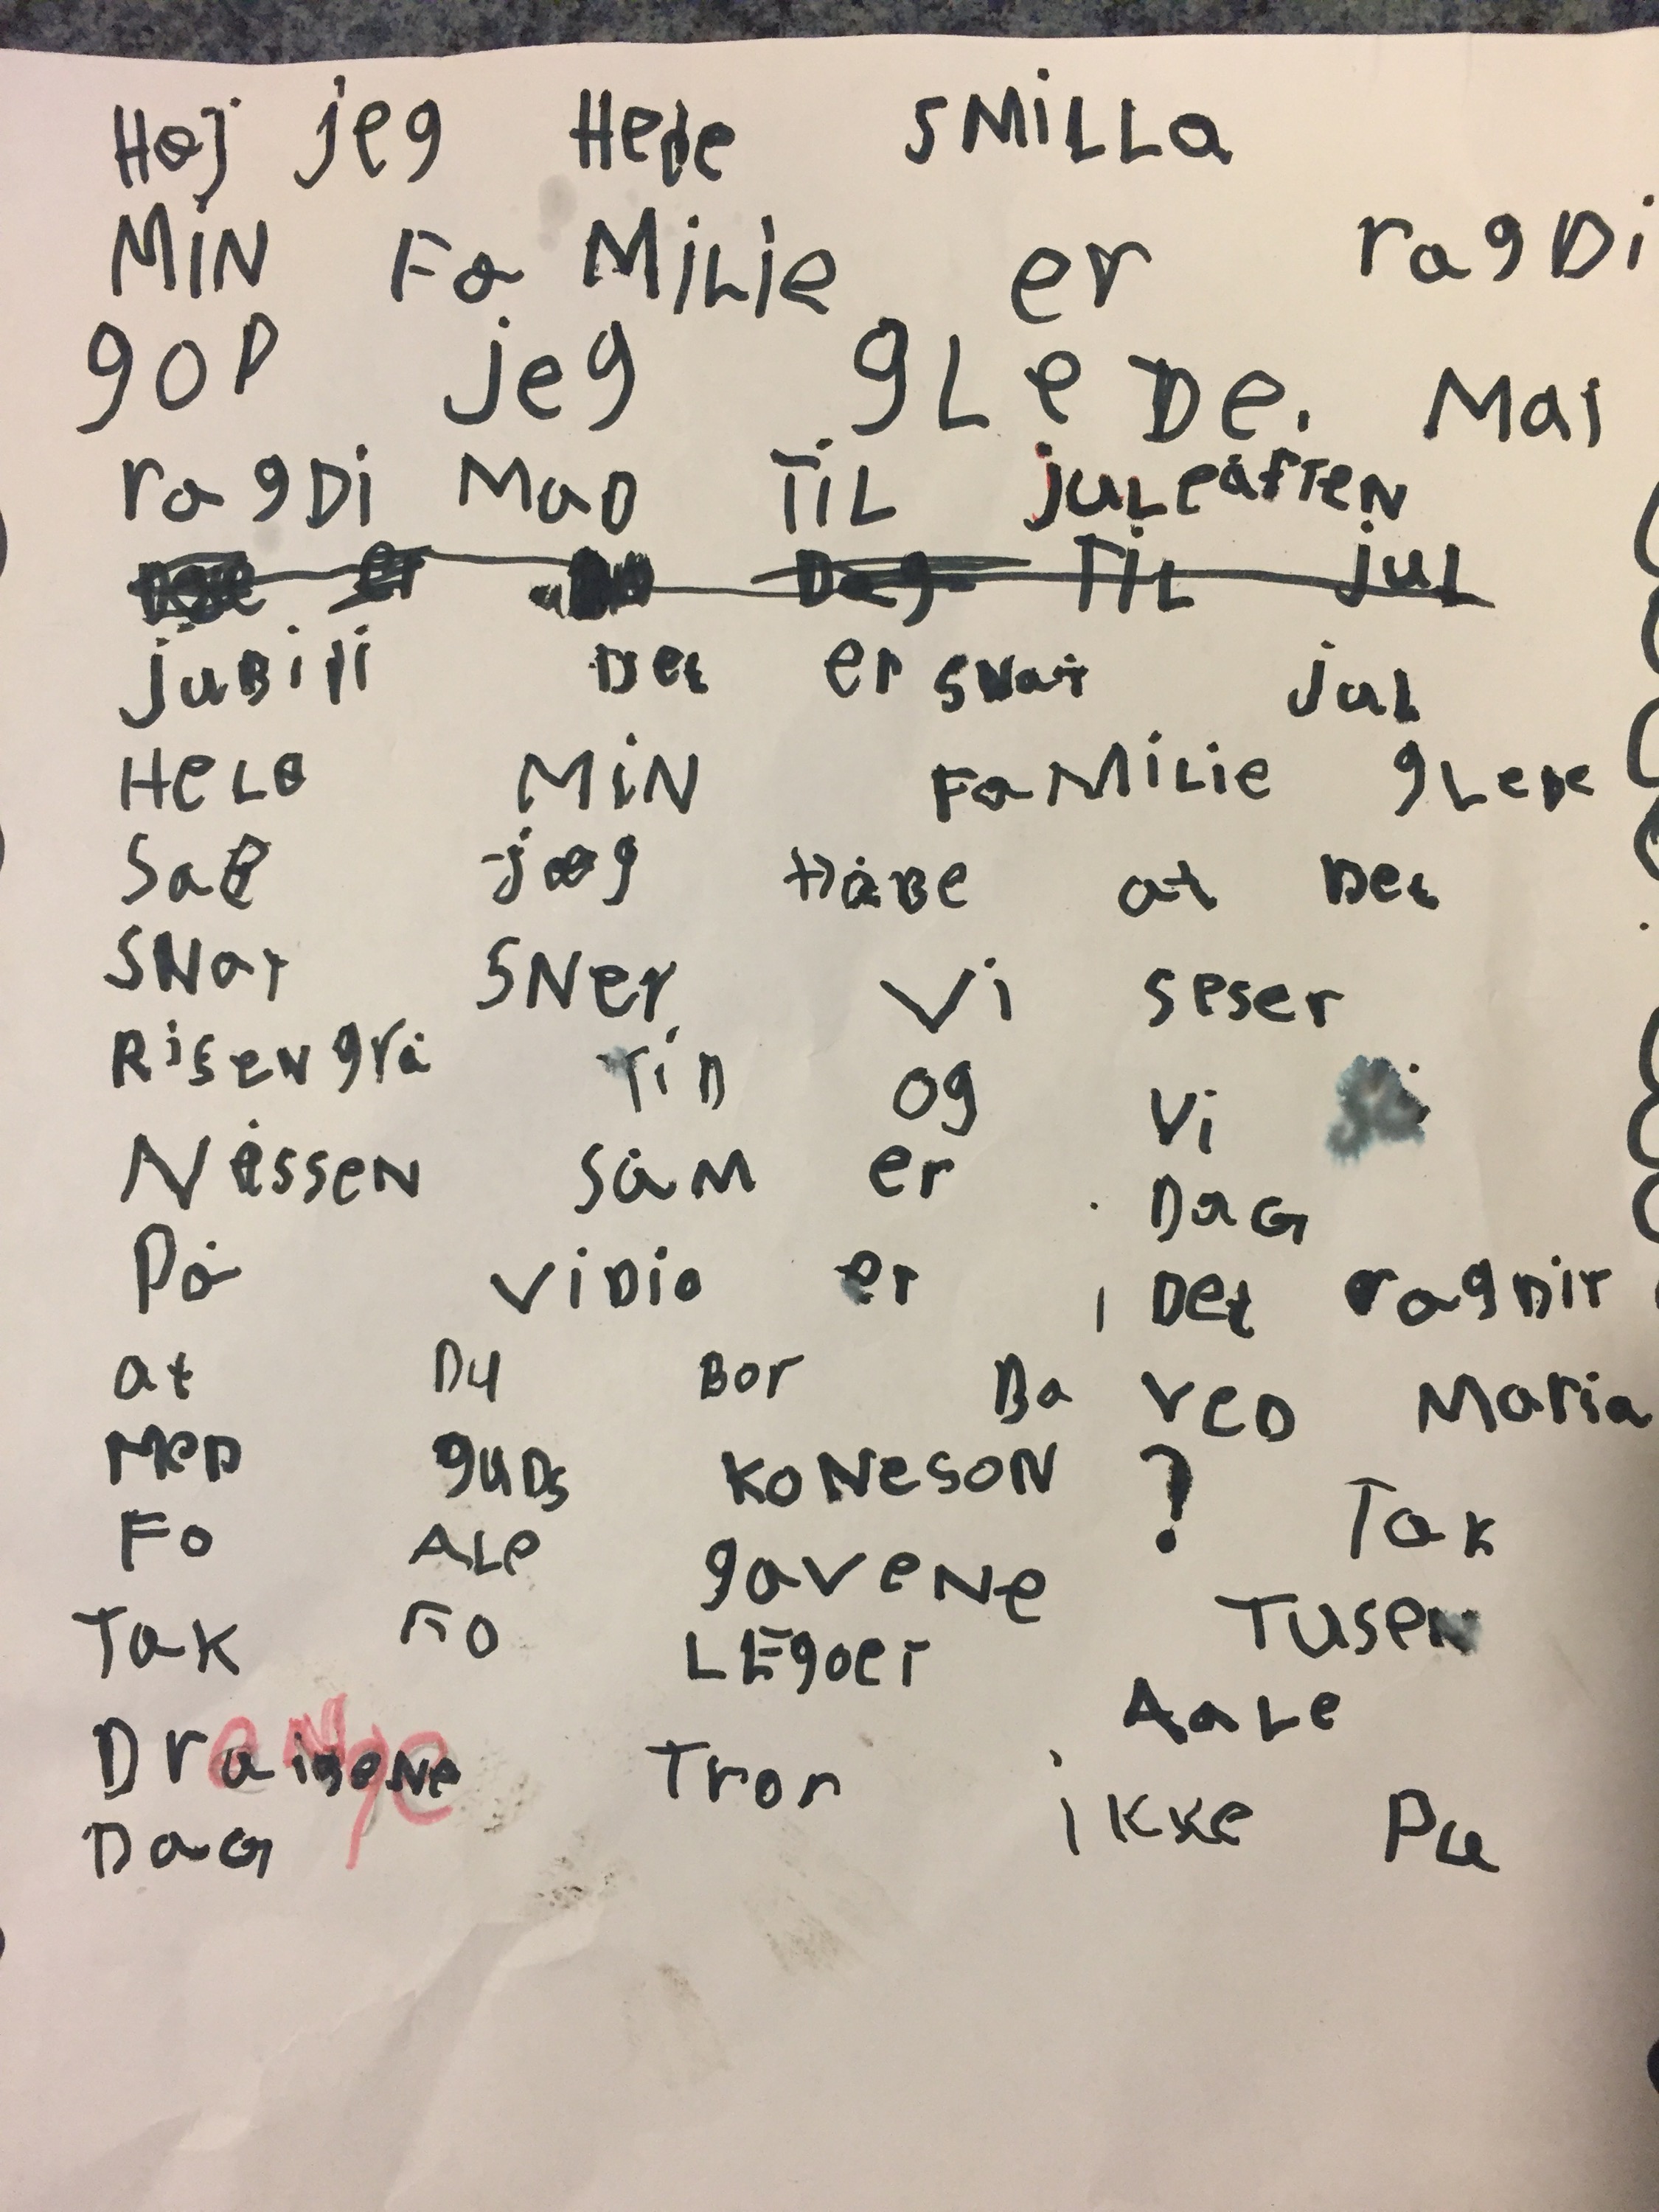 Høj jeg Hede SMiLLa
MiN FaMiLie er ragDi
goD jeg gLeDe. Mai
ragDi MaD TiL juLeåfTeN
er Dag TiL juL
juBiii Det er sNat juL
HeLe MiN FaMiLie gLeDe
Sae jeg HåBe at Det
SNaT SNer Vi seser
RiseNgrå TiD og Vi
NissseN såM er DaG
På ViDio er i Det ragDiT
at Du Bor Da veD Maria
MeD guDs KoNesoN ? Tak
Fo ALe gaveNe TuseN
Tak Fo LEgoeT AaLe
DraigeNe Tror ikke Pu
DaG